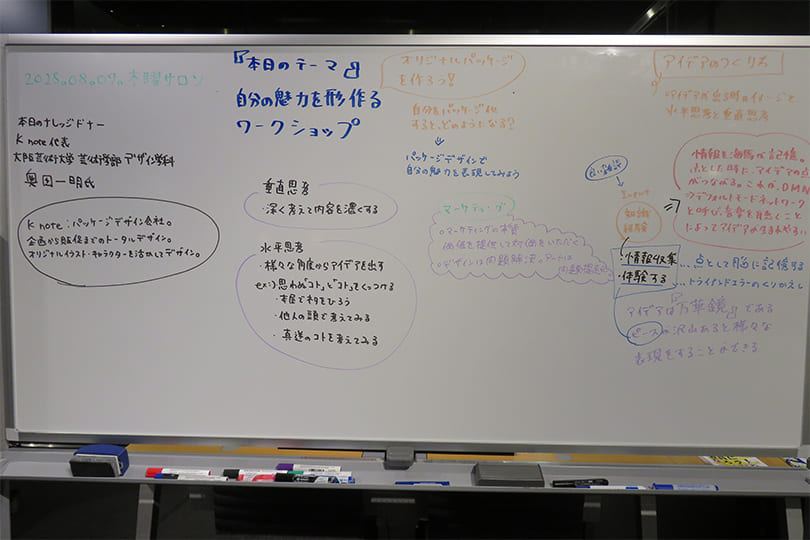 2018.08.09. 木曜サロン
本日のナレッジドナー
K note 代表
大阪芸術大学 芸術学部 デザイン学科
奥田一明氏
K note : パッケージデザイン会社。
企画から販促までのトータルデザイン。
オリジナルイラスト・キャラクターを活かしてデザイン。
『本日のテーマ』
自分の魅力を形作る
ワークショップ
垂直思考
・深く考えて内容を濃くする
水平思考
・様々な角度からアイデアを出す
ex:)思わぬ「コト」と「コト」をくっつける
・本屋でネタをひろう
・他人の頭で考えてみる
・真逆のコトを考えてみる
オリジナルパッケージ
を作ろう!
自分をパッケージ化
すると、どのようになる?
パッケージデザインで
自分の魅力を表現してみよう
マーケティング
・マーケティングの本質
価値を提供して対価をいただく
・デザインは問題解決。アートは
問題提起
アイデアのつくり方
アイデアが出る時のイメージと
水平思考と垂直思考
情報を海馬が記憶。
点とした時に、アイデアの点
がつながる。これが、DMN
→デフォルトモードネットワーク
と呼び、
によってアイデアが生まれやすい
知識
経験
・情報収集
・体験する
...点として脳に記憶する
...トライアンドエラーのくりかえし
アイデアは『万華鏡』である
ピースが沢山あると様々な
表現をすることができる